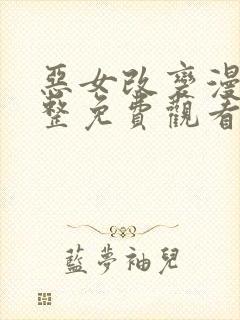 惡女改變漫
整免費觀看
藍夢袖兒